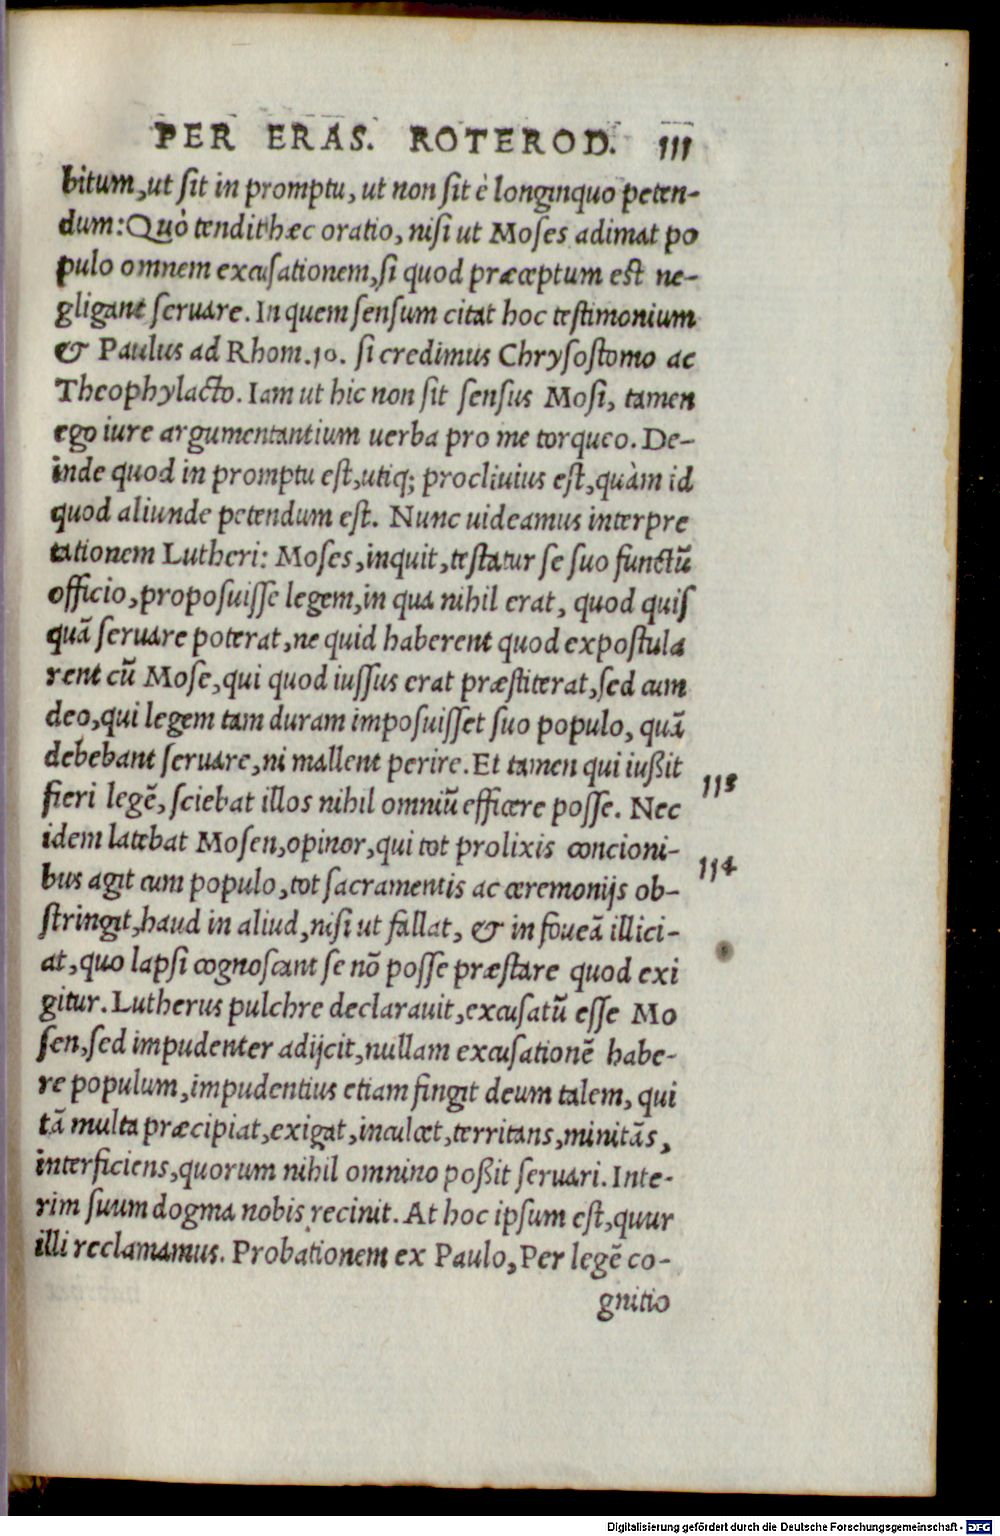 PER ERAS. ROTEROD. 111
bitum, ut sit in promptu, ut non sit è longinquo peten-
dum: Quò tendit hæc oratio, nisi ut Moses adimat po
pulo omnem excusationem, si quod præceptum est ne-
gligant seruare. In quem sensum citat hoc testimonium
& Paulus ad Rhom. 10. si credimus Chrysostomo ac
Theophylacto. Iam ut hic non sit sensus Mosi, tamen
ego iure argumentantium uerba pro me torqueo. De-
inde quod in promptu est, utiq; procliuius est, quàm id
quod aliunde petendum est. Nunc uideamus interpre
tationem Lutheri: Moses, inquit, testatur se suo functũ
officio, proposuisse legem, in qua nihil erat, quod quis
quã seruare poterat, ne quid haberent quod expostula
rent cũ Mose, qui quod iussus erat præstiterat, sed cum
deo, qui legem tam duram imposuisset suo populo, quã
debebant seruare, ni mallent perire. Et tamen qui iußit
fieri legẽ, sciebat illos nihil omniũ efficere posse. Nec
113
idem latebat Mosen, opinor, qui tot prolixis concioni-
bus agit cum populo, tot sacramentis ac ceremonijs ob-
114
stringit, haud in aliud, nisi ut fallat, & in foueã illici-
at, quo lapsi cognoscant se nõ posse præstare quod exi
gitur. Lutherus pulchre declarauit, excusatũ esse Mo
sen, sed impudenter adijcit, nullam excusationẽ habe-
re populum, impudentius etiam fingit deum talem, qui
tã multa præcipiat, exigat, inculcet, territans, minitãs,
interficiens, quorum nihil omnino poßit seruari. Inte-
rim suum dogma nobis recinit. At hoc ipsum est, quur
illi reclamamus. Probationem ex Paulo, Per legẽ co-
gnitio
Digitalisierung gefördert durch die Deutsche Forschungsgemeinschaft - DFG